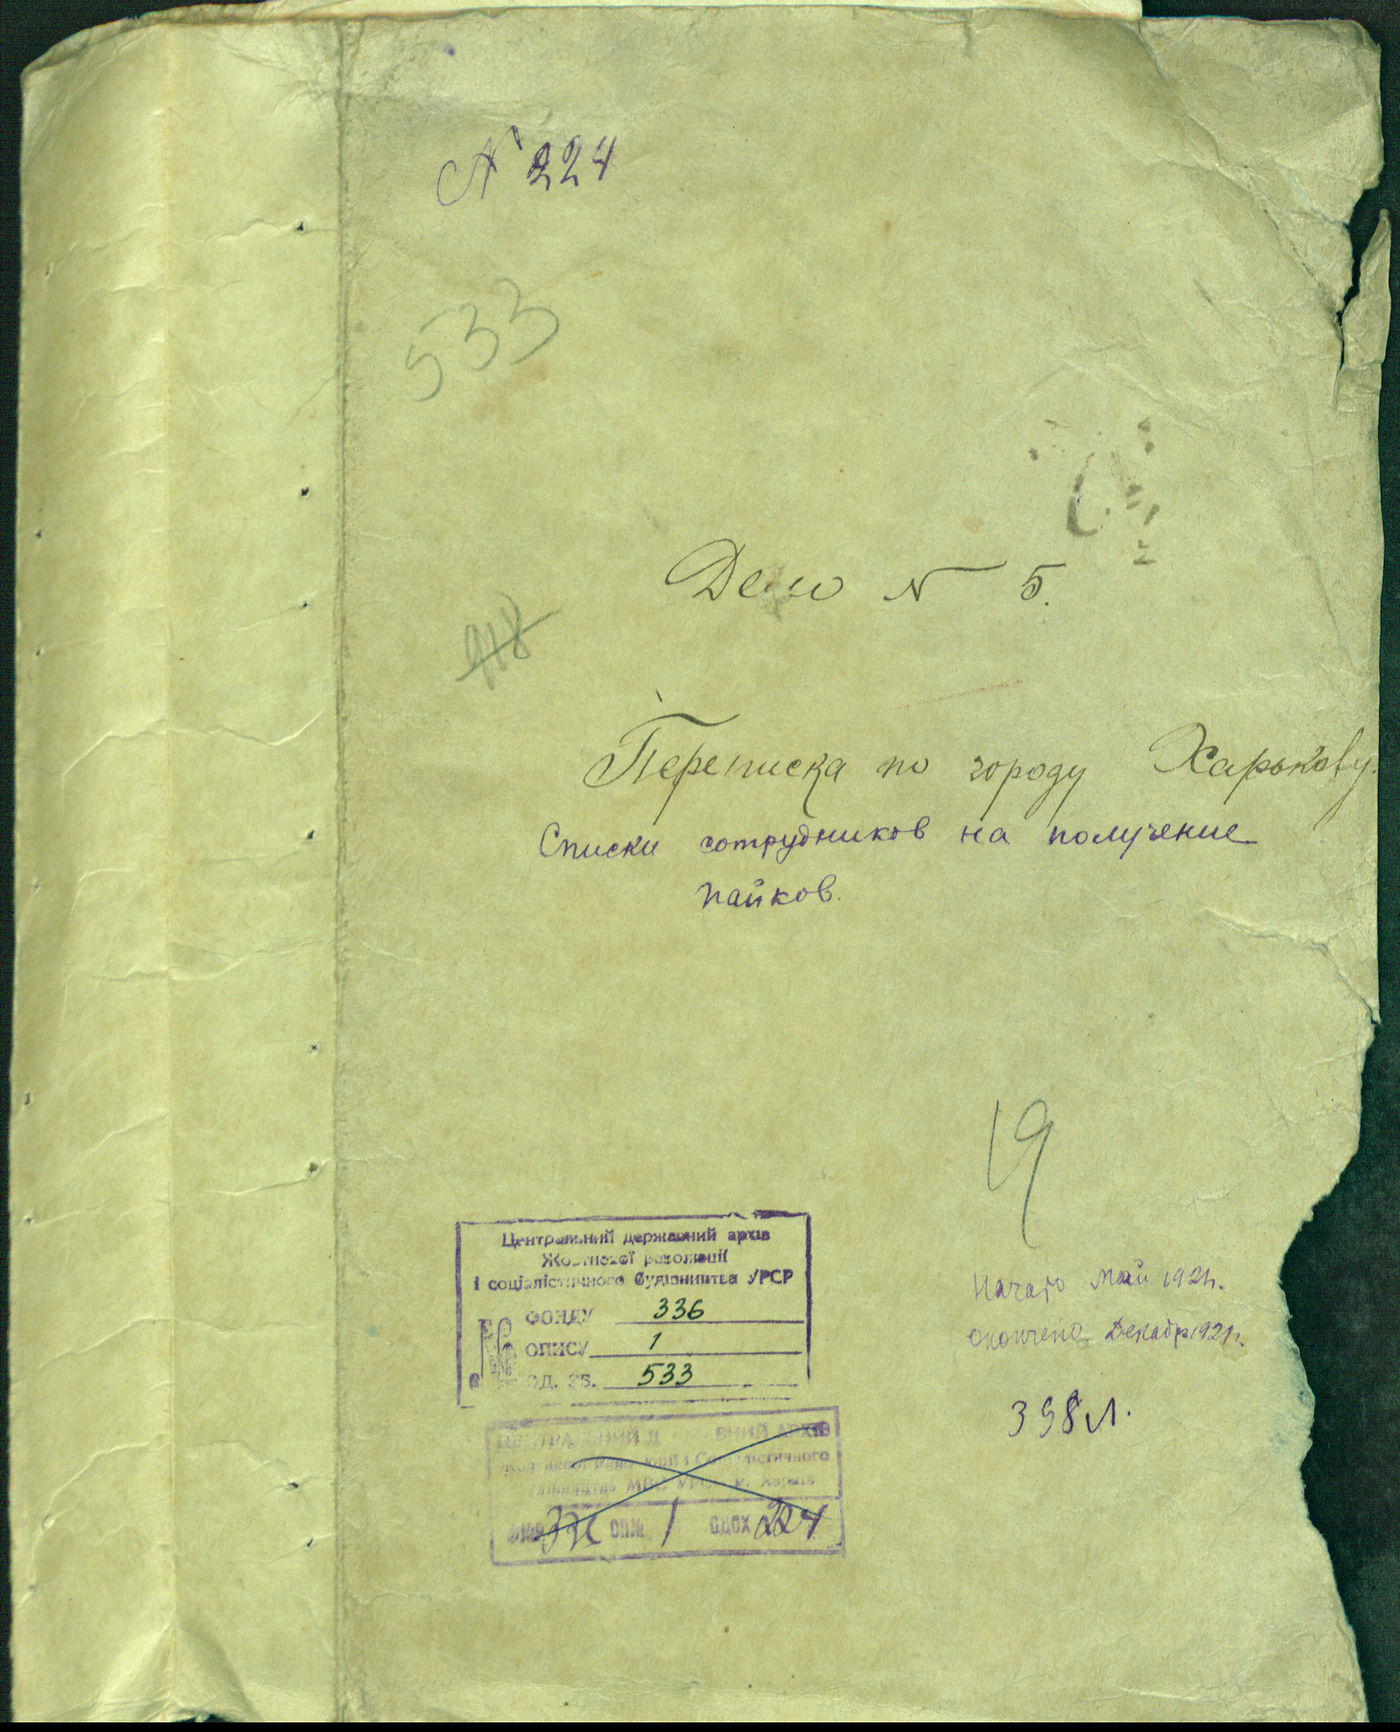 № 224
533
Дело № 5.
Переписка по городу Харькову.
Списки сотрудников на получение
пайков.
19
Центральний державний архів
Жовтневої революції
і соціалістичного будівництва УРСР
ФОНДУ 336
№ ОПИСУ 1
ОД. ЗБ. 533
Начато Май 1921г.
окончено Декабр 1921г.
398 л.
ЦЕНТРАЛЬНИЙ ДЕРЖАВНИЙ АРХІВ
Жовтневої революції і Соціалістичного
будівництва МВС УРСР м. Харків
ФОНД 336 ОП№ 1 ОДОХ 224